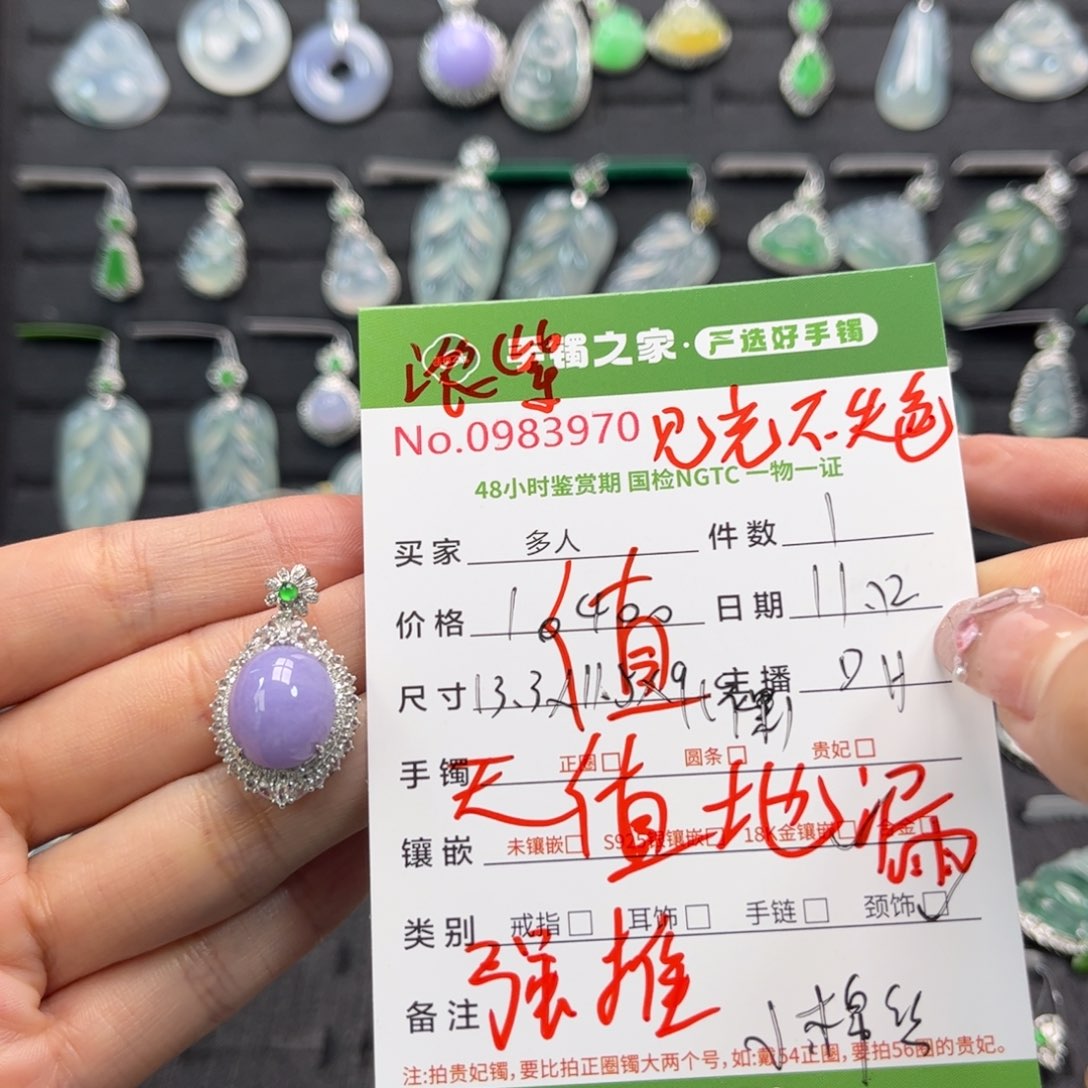 浓紫 镯之家·严选好手镯
No.0983970 见光不失色
48小时鉴赏期 国检NGTC 一物一证
买家 多人 件数 1
价格 1.0400 日期 11.12
尺寸 13.3x11.5x9 主播
手镯 正圈 圆条 贵妃
值
天值地漏
镶嵌 未镶嵌 S925银镶嵌 18K金镶嵌 合金
类别 戒指 耳饰 手链 颈饰
强推
备注 小棉丝
注:拍贵妃镯,要比拍正圈镯大两个号,如:戴54正圈,要拍56圈的贵妃。